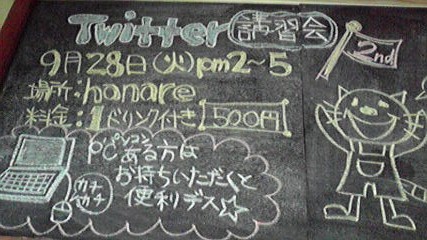 Twitter 講習会
2nd
9月28日(火)pm2~5
場所:hanare
料金:1ドリンク付き 500円
PCパソコンある方は
お持ちいただくと
便利デス☆
カチ
カチ